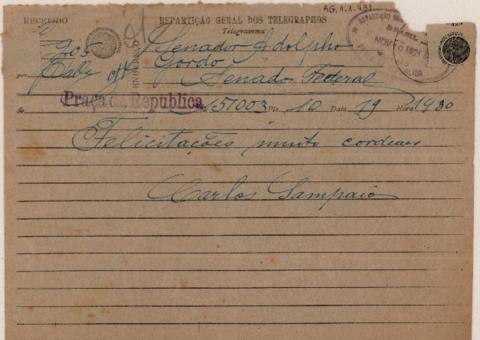 AG.1.1.431
RECEBIDO REPARTIÇÃO GERAL DOS TELEGRAPHOS
Telegramma
Senador Adolpho
Gordo
Senado Federal
Praça da Republica
de Nº 51003 Pls. 10 Data 19 Hora 1930
Felicitações muito cordeaes
Carlos Sampaio